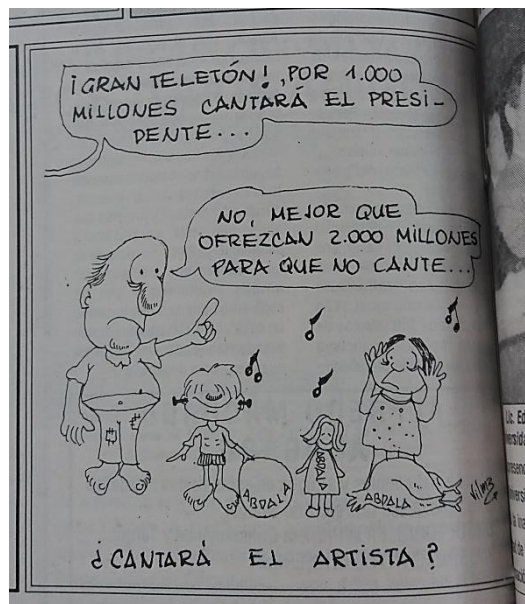 ¡GRAN TELETÓN!, POR 1.000
MILLONES CANTARÁ EL PRESI-
DENTE...
NO, MEJOR QUE
OFREZCAN 2.000 MILLONES
PARA QUE NO CANTE...
ABDALA
ABDALA
ABDALA
Vilmiz
¿CANTARÁ EL ARTISTA?
Lic. Ed
versida